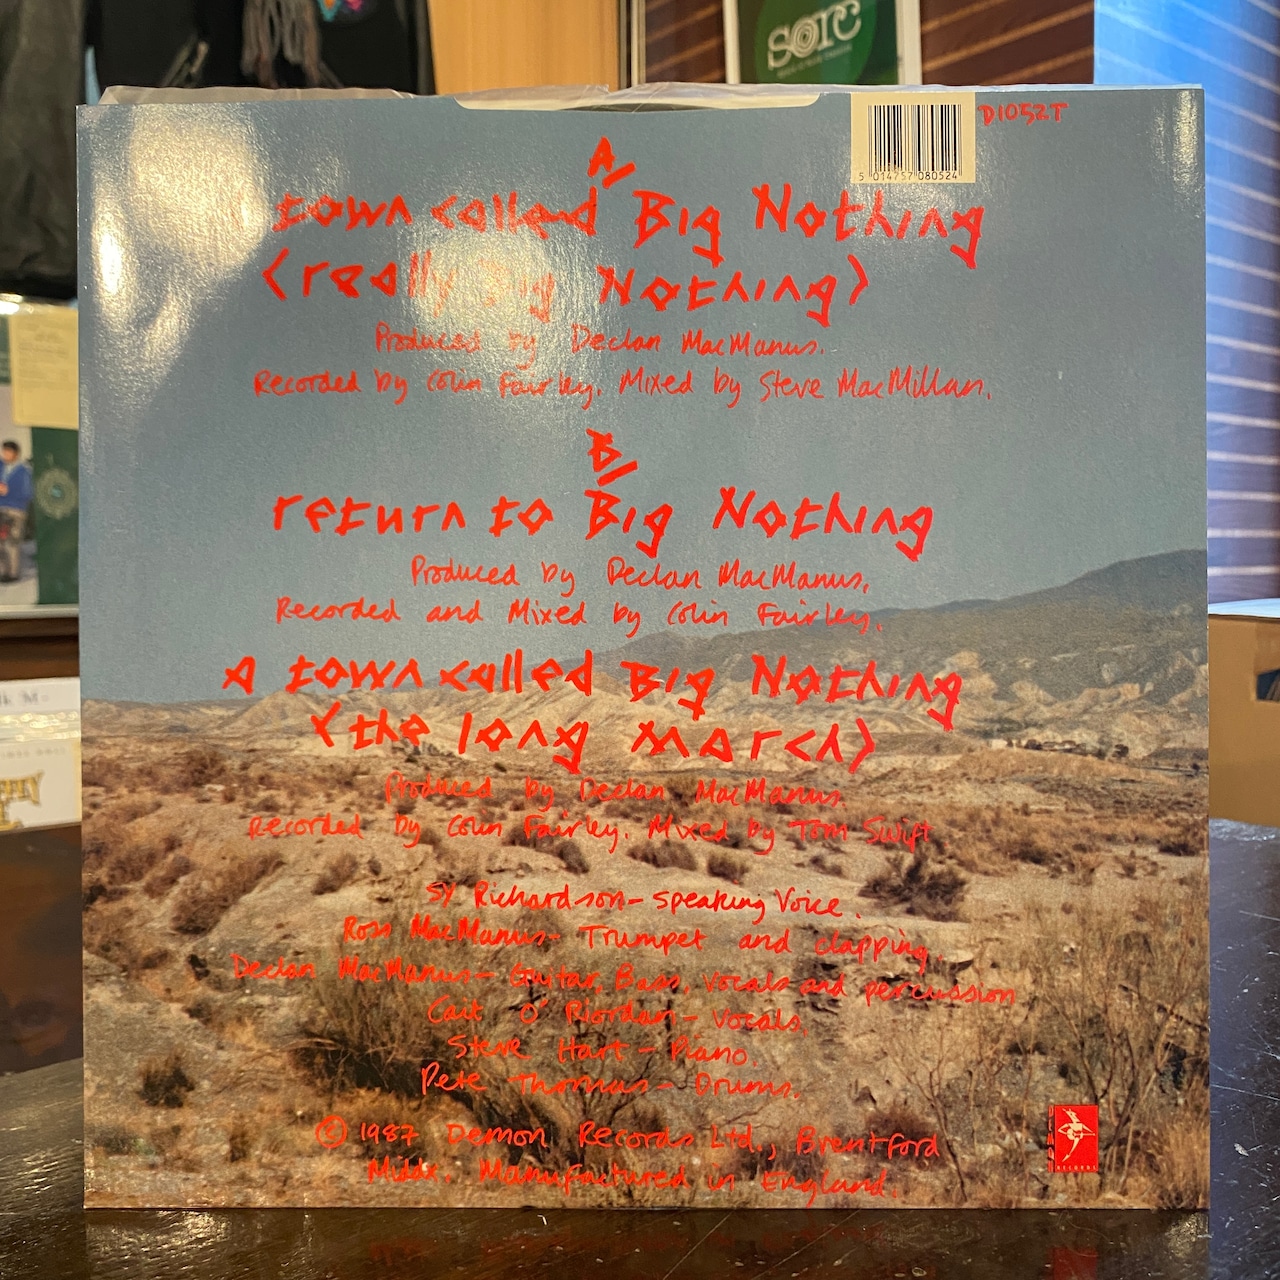 SOTC
5 014757 080524
D1052T
A/
town called Big Nothing
(really Big Nothing)
Produced by Declan MacManus.
Recorded by Colin Fairley. Mixed by Steve MacMillan.
B/
return to Big Nothing
Produced by Declan MacManus.
Recorded and Mixed by Colin Fairley.
A town called Big Nothing
(the long march)
Produced by Declan MacManus.
Recorded by Colin Fairley. Mixed by Tom Swift
Sy Richardson - speaking Voice.
Ross MacManus - Trumpet and clapping.
Declan MacManus - Guitar, Bass, vocals and percussion
Cait O'Riordan - vocals.
Steve Hart - Piano.
Pete Thomas - Drums.
© 1987 Demon Records Ltd., Brentford
Middx. Manufactured in England.
RECORDS